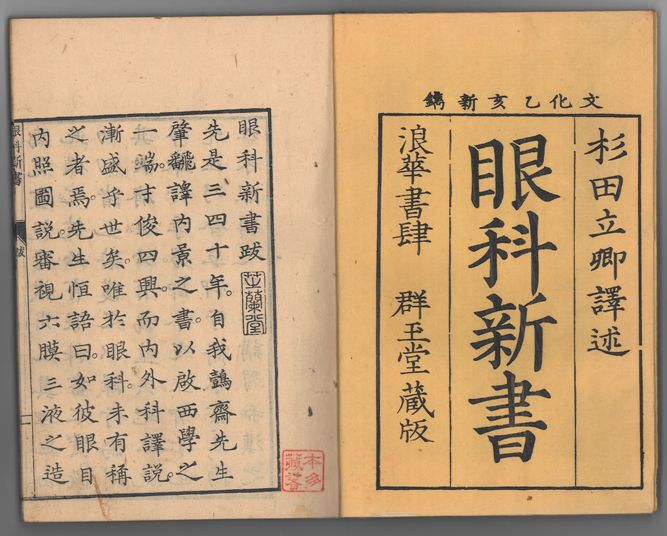 文化乙亥新鐫
杉田立卿譯述
眼科新書
浪華書肆 群玉堂蔵版
眼科新書跋 芝蘭堂
先是三四十年。自我鷧齋先生
肇飜譯内景之書。以啟西學之
一端。才俊四興。而内外科譯説。
漸盛乎世矣。唯於眼科。未有稱
之者焉。先生恒語曰。如彼眼目
内照圖説。審視六膜三液之造
眼科新書 跋 一
本多
藏書